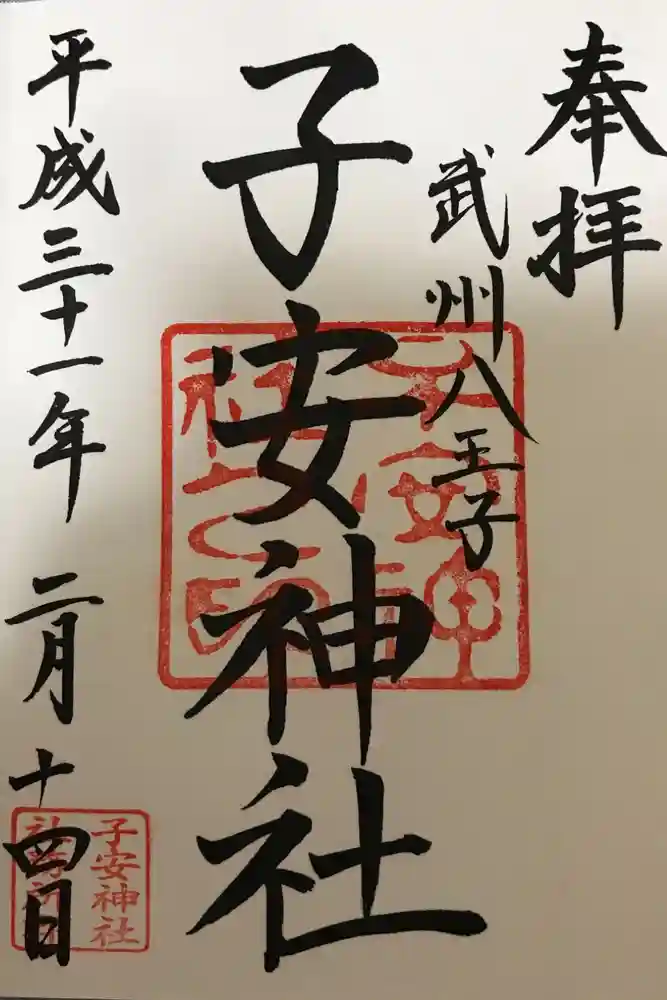 奉拝
武州八王子
子安神社
平成三十一年 二月十四日
子安神社